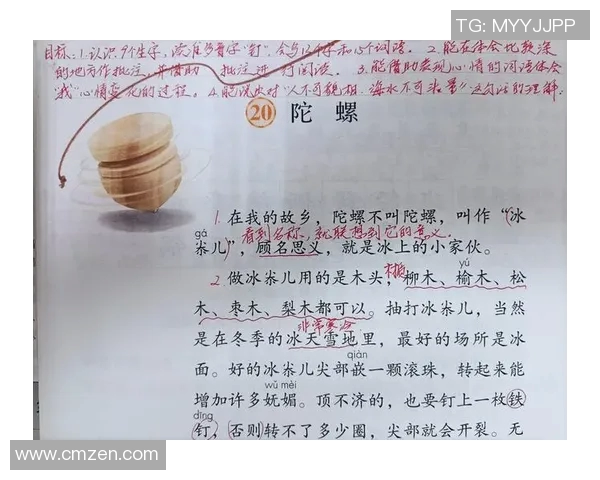 TG: MYYJJPP
目标:1.认识9个生字,读准多音字“钉”,会写12个字和15个词语。2.能在体会比较深
的地方作批注,并借助 批注进行阅读。3.能借助表现心情的词语体会
“我”心情变化的过程。4.能说出对“人不可貌相,海水不可斗量”这句话的理解.
20 陀 螺
1.在我的故乡,陀螺不叫陀螺,叫作“冰
gá 看到名称,就联想到它的意义.
尜儿”,顾名思义,就是冰上的小家伙。
2 做冰尜儿用的是木头,柳木、榆木、松
yú
木、枣木、梨木都可以。抽打冰尜儿,当然
非常寒冷
是在冬季的冰天雪地里,最好的场所是冰
qiàn
面。好的冰尜儿尖部嵌一颗滚珠,转起来能
wǔ mèi
增加许多妩媚。顶不济的,也要钉上一枚铁
dīng
钉,否则转不了多少圈,尖部就会开裂。无
www.cmzen.com